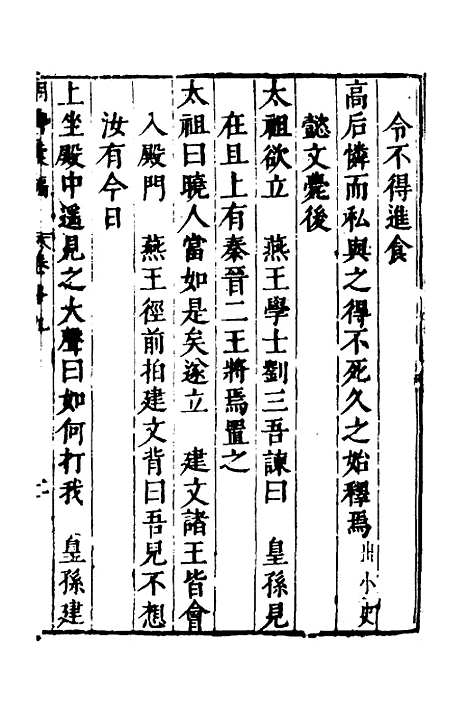 令不得進食
高后憐而私與之得不死久之始釋焉 出小史
懿文薨後
太祖欲立　燕王學士劉三吾諫曰　皇孫見
在且上有秦晉二王將焉置之
太祖曰曉人當如是矣遂立　建文諸王皆會
入殿門　燕王徑前拍建文背曰吾兒不想
汝有今日
上坐殿中遥見之大聲曰如何打我　皇孫建